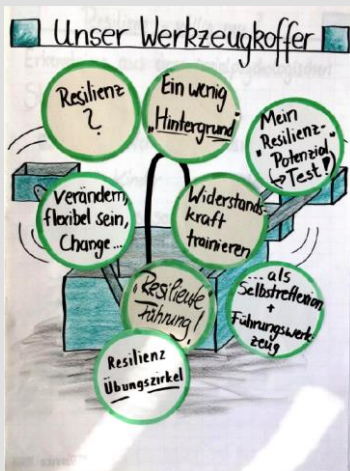 Unser Werkzeugkoffer
Resilienz
?
Ein wenig
"Hintergrund"
Mein
Resilienz-
"Potenzial"
↳ Test!
Verändern,
flexibel sein,
Change...
Widerstands-
kraft
trainieren
"Resiliente"
Führung!
...als
Selbstreflexion
+
Führungswerk-
zeug
Resilienz
Übungszirkel